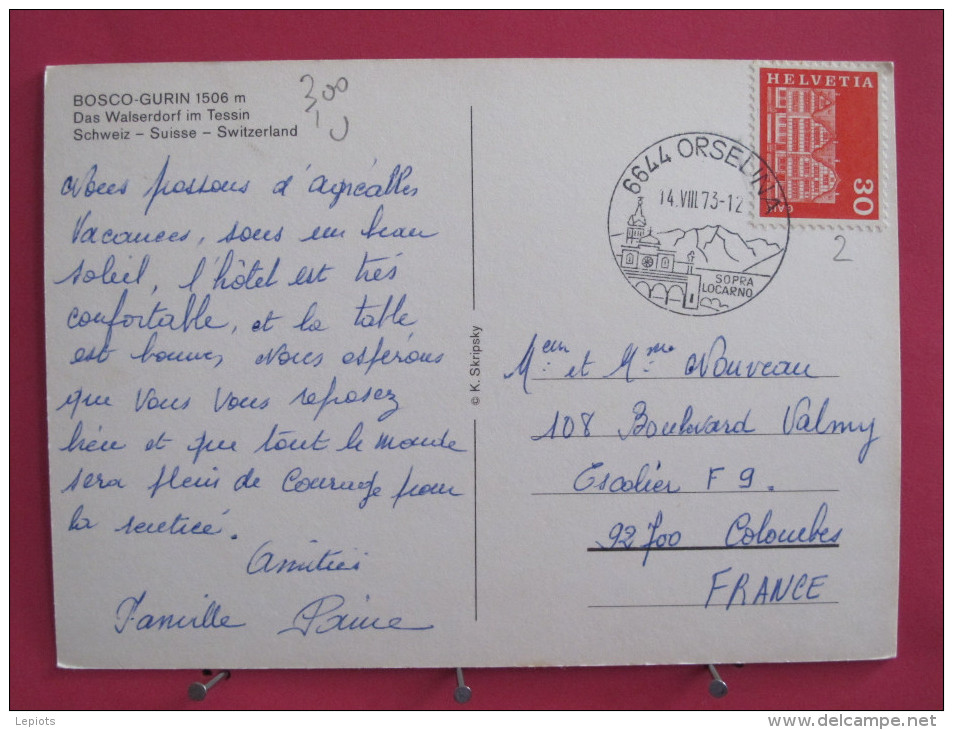 BOSCO-GURIN 1506 m
Das Walserdorf im Tessin
Schweiz – Suisse – Switzerland
300
Nous passons d'agréables
Vacances, sous un beau
soleil, l'hôtel est très
confortable, et la table
est bonne, Nous espérons
que Vous Vous reposez
bien et que tout le monde
sera plein de Courage pour
la rentrée.
Amitiés
Famille
© K. Skripsky
HELVETIA
30
GAIS
6644 ORSELINA
14.VIII.73-12
SOPRA
LOCARNO
2
et Mme Nouveau
108 Boulevard Valmy
Escalier F 9.
92700 Colombes
FRANCE
Lepiots
delcampe.net